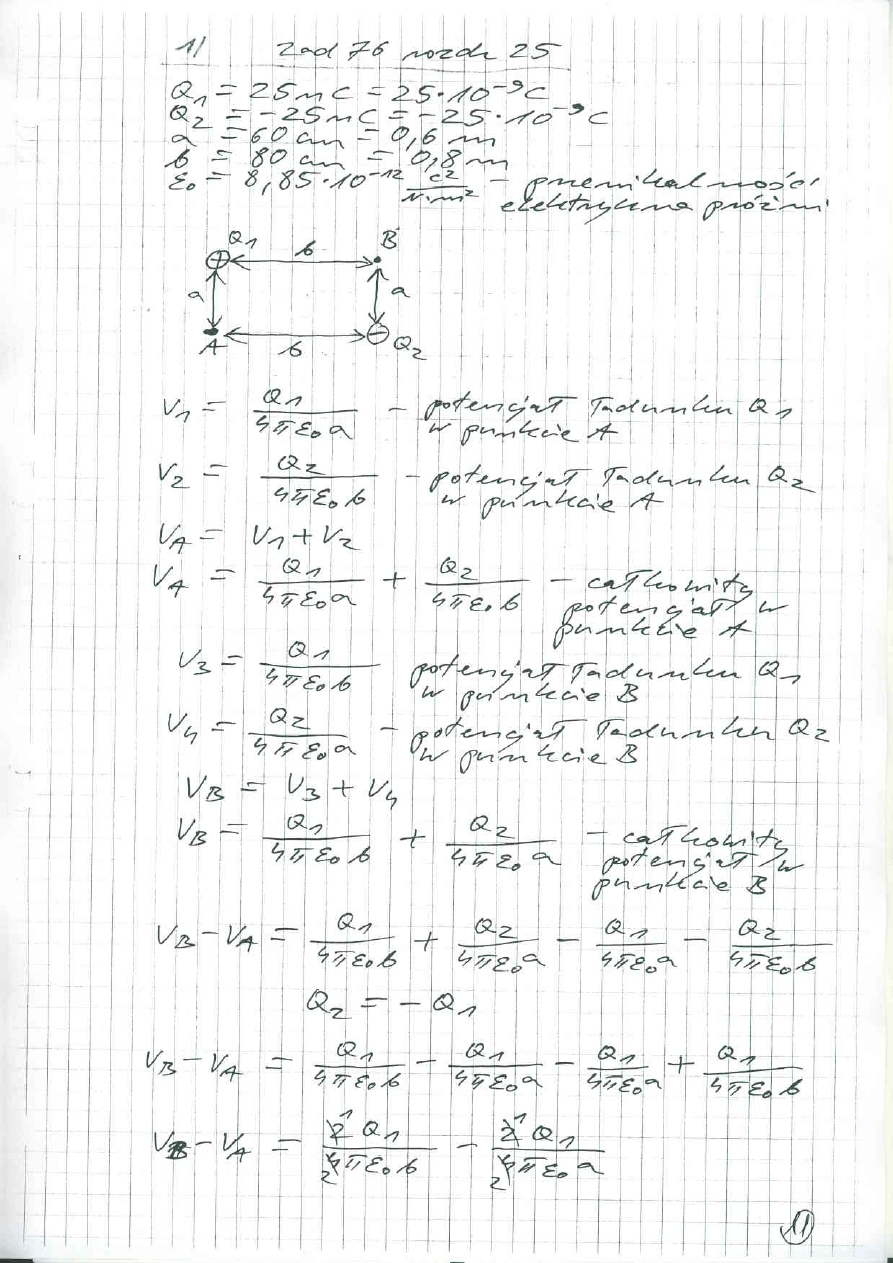 1/ Zad 76 rozdz 25
Q₁ = 25 nC = 25·10⁻⁹C
Q₂ = -25 nC = -25·10⁻⁹C
a = 60 cm = 0,6 m
b = 80 cm = 0,8 m
ε₀ = 8,85·10⁻¹² C²/N·m² - przenikalność
elektryczna próżni
Q₁ b B
a a
A b Q₂
V₁ = Q₁/4πε₀a - potencjał ładunku Q₁
w punkcie A
V₂ = Q₂/4πε₀b - potencjał ładunku Q₂
w punkcie A
V_A = V₁ + V₂
V_A = Q₁/4πε₀a + Q₂/4πε₀b - całkowity
potencjał w
punkcie A
V₃ = Q₁/4πε₀b potencjał ładunku Q₁
w punkcie B
V₄ = Q₂/4πε₀a - potencjał ładunku Q₂
w punkcie B
V_B = V₃ + V₄
V_B = Q₁/4πε₀b + Q₂/4πε₀a - całkowity
potencjał w
punkcie B
V_B - V_A = Q₁/4πε₀b + Q₂/4πε₀a - Q₁/4πε₀a - Q₂/4πε₀b
Q₂ = - Q₁
V_B - V_A = Q₁/4πε₀b - Q₁/4πε₀a - Q₁/4πε₀a + Q₁/4πε₀b
V_B - V_A = 2̸¹Q₁/4̸₂πε₀b - 2̸¹Q₁/4̸₂πε₀a
11